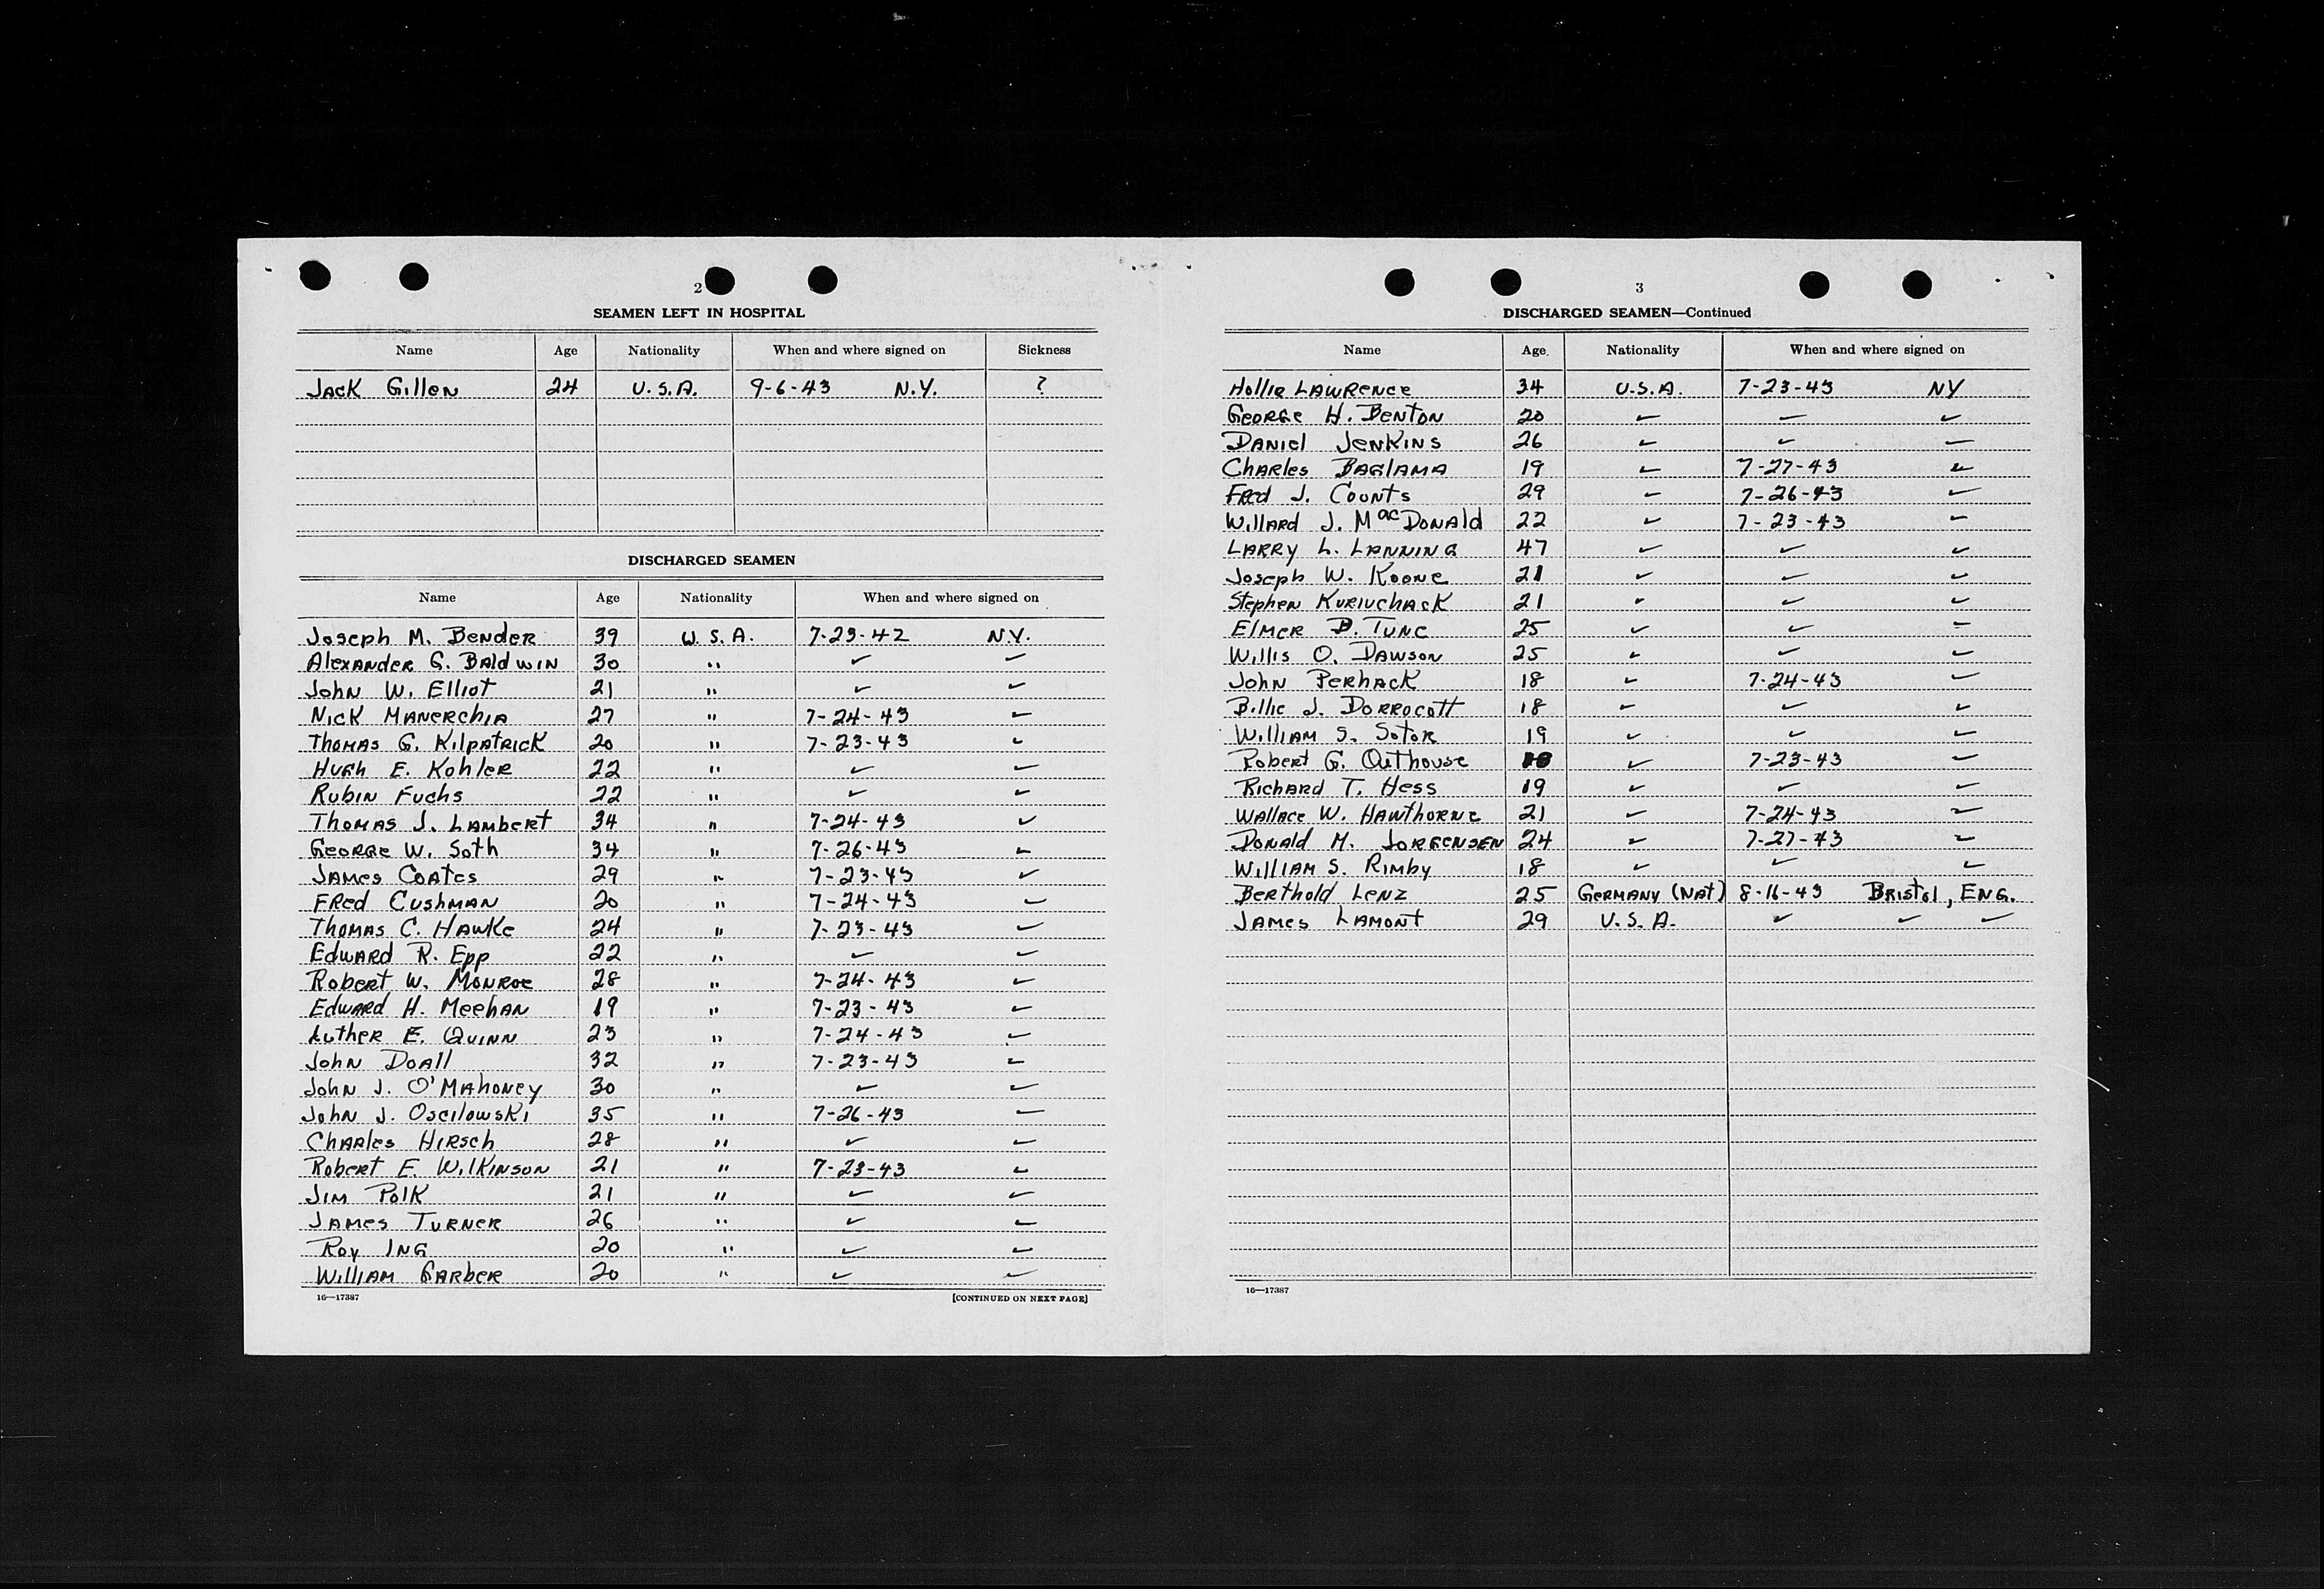 2
SEAMEN LEFT IN HOSPITAL
Name Age Nationality When and where signed on Sickness
Jack Gillen 24 U.S.A. 9-6-43 N.Y. ?
DISCHARGED SEAMEN
Name Age Nationality When and where signed on
Joseph M. Bender 39 U.S.A. 7-23-42 N.Y.
Alexander G. Baldwin 30 " ✓ ✓
John W. Elliot 21 " ✓ ✓
Nick Manerchia 27 " 7-24-43 ✓
Thomas G. Kilpatrick 20 " 7-23-43 ✓
Hugh E. Kohler 22 " ✓ ✓
Rubin Fuchs 22 " ✓ ✓
Thomas J. Lambert 34 " 7-24-43 ✓
George W. Soth 34 " 7-26-43 ✓
James Coates 29 " 7-23-43 ✓
Fred Cushman 20 " 7-24-43 ✓
Thomas C. Hawke 24 " 7-23-43 ✓
Edward R. Epp 22 " ✓ ✓
Robert W. Monroe 28 " 7-24-43 ✓
Edward H. Meehan 19 " 7-23-43 ✓
Luther E. Quinn 23 " 7-24-43 ✓
John Doall 32 " 7-23-43 ✓
John J. O'Mahoney 30 " ✓ ✓
John J. Oscilowski 35 " 7-26-43 ✓
Charles Hirsch 28 " ✓ ✓
Robert E. Wilkinson 21 " 7-23-43 ✓
Jim Polk 21 " ✓ ✓
James Turner 26 " ✓ ✓
Roy Ing 20 " ✓ ✓
William Garber 20 " ✓ ✓
16—17387 [CONTINUED ON NEXT PAGE]
3
DISCHARGED SEAMEN—Continued
Name Age. Nationality When and where signed on
Hollie Lawrence 34 U.S.A. 7-23-43 NY
George H. Benton 20 ✓ ✓ ✓
Daniel Jenkins 26 ✓ ✓ ✓
Charles Baglama 19 ✓ 7-27-43 ✓
Fred J. Counts 29 ✓ 7-26-43 ✓
Willard J. MacDonald 22 ✓ 7-23-43 ✓
Larry L. Lanning 47 ✓ ✓ ✓
Joseph W. Koone 21 ✓ ✓ ✓
Stephen Kuriuchack 21 ✓ ✓ ✓
Elmer B. Tune 25 ✓ ✓ ✓
Willis O. Dawson 25 ✓ ✓ ✓
John Perhack 18 ✓ 7-24-43 ✓
Billie J. Dorrocott 18 ✓ ✓ ✓
William S. Sotor 19 ✓ ✓ ✓
Robert G. Outhouse ✓ 7-23-43 ✓
Richard T. Hess 19 ✓ ✓ ✓
Wallace W. Hawthorne 21 ✓ 7-24-43 ✓
Donald M. Jorgensen 24 ✓ 7-27-43 ✓
William S. Rimby 18 ✓ ✓ ✓
Berthold Lenz 25 Germany (Nat) 8-16-43 Bristol, Eng.
James Lamont 29 U.S.A. ✓ ✓ ✓
16—17387